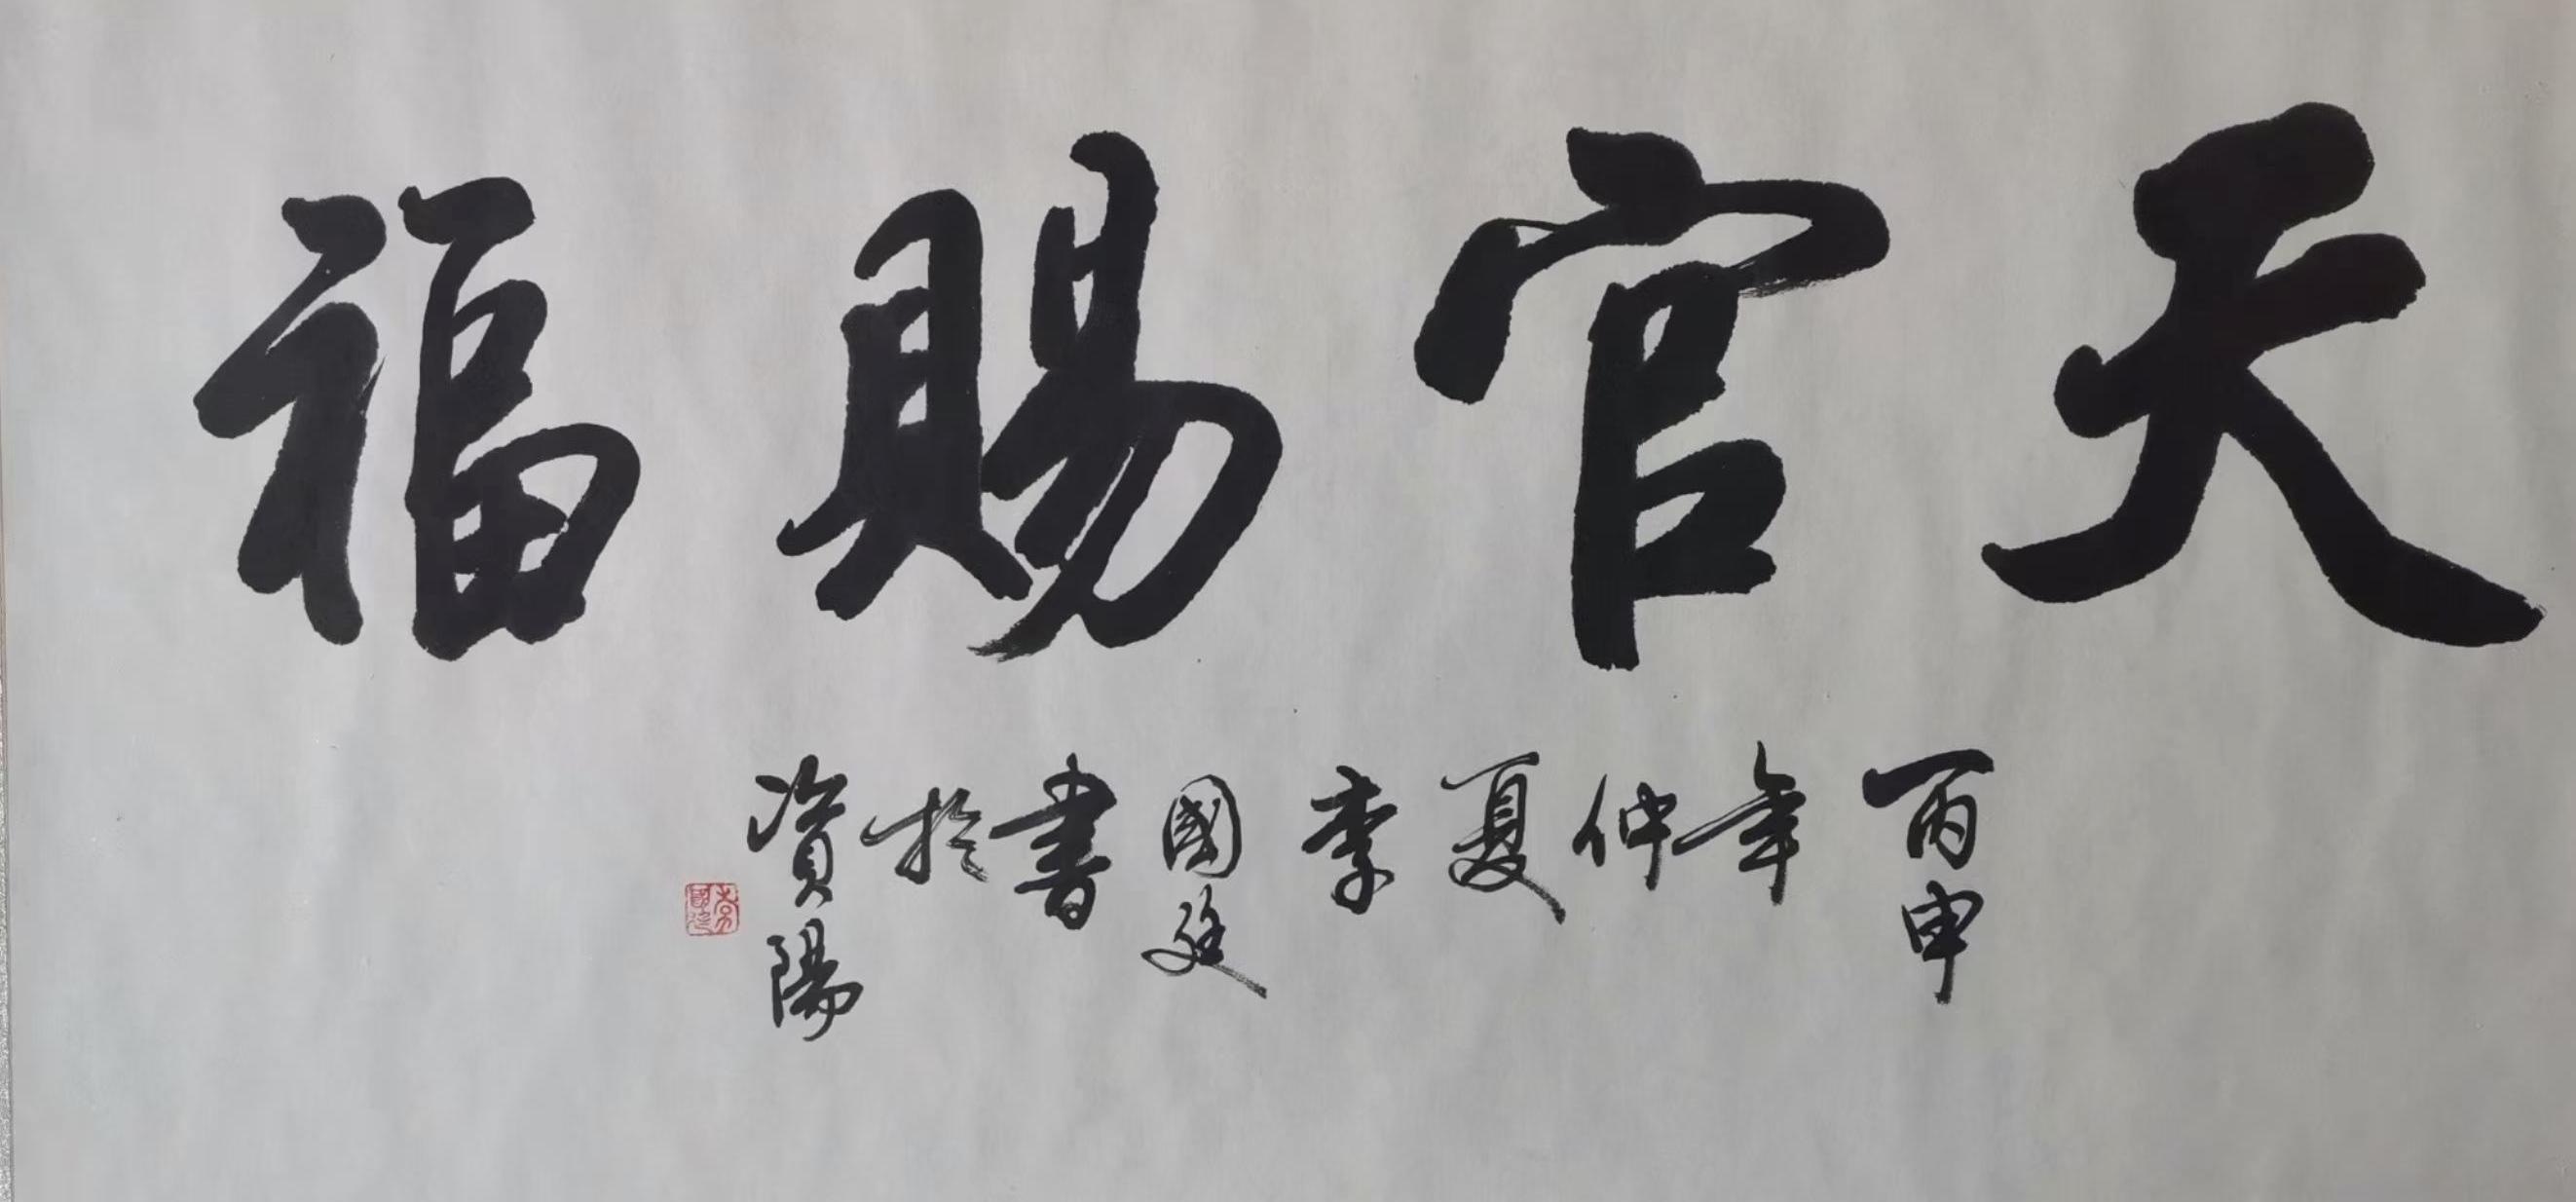 天官賜福
丙申年仲夏李國庭書於資陽